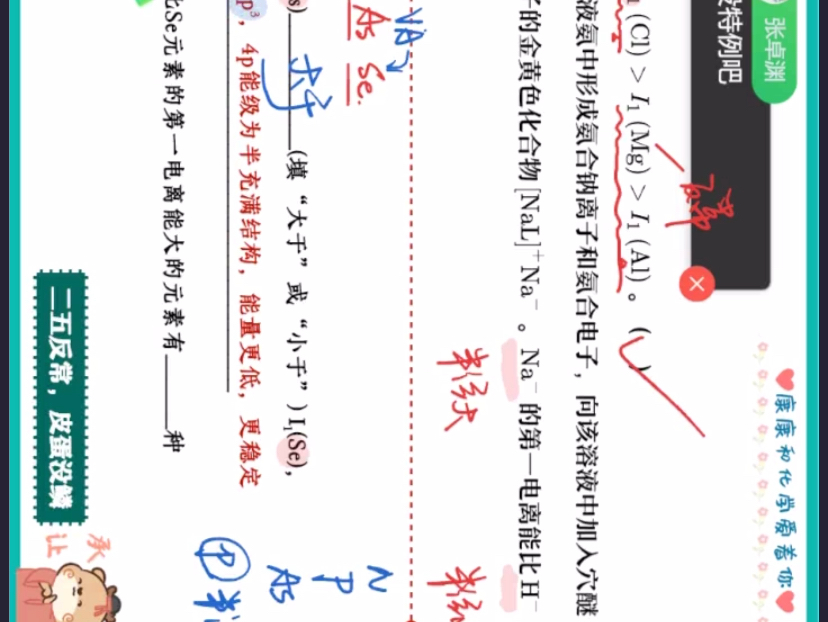 张卓渊
设特例吧
(Cl) > I₁ (Mg) > I₁ (Al)。(✓)
液氨中形成氨合钠离子和氨合电子，向该溶液中加入穴醚
的金黄色化合物 [NaL]⁺Na⁻。Na⁻ 的第一电离能比 H⁻
半径大
半径
VA
As Se.
N
P
As
大于 (填“大于”或“小于”) I₁(Se),
p³, 4p能级为半充满结构，能量更低，更稳定
比Se元素的第一电离能大的元素有____种
二五反常，皮蛋没
康康和化学爱着你